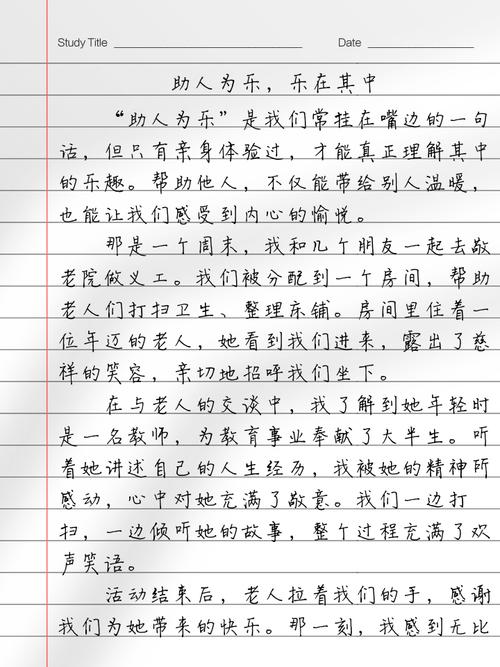 Study Title Date
助人为乐，乐在其中
“助人为乐”是我们常挂在嘴边的一句
话，但只有亲身体验过，才能真正理解其中
的乐趣。帮助他人，不仅能带给别人温暖，
也能让我们感受到内心的愉悦。
那是一个周末，我和几个朋友一起去敬
老院做义工。我们被分配到一个房间，帮助
老人们打扫卫生、整理床铺。房间里住着一
位年迈的老人，她看到我们进来，露出了慈
祥的笑容，亲切地招呼我们坐下。
在与老人的交谈中，我了解到她年轻时
是一名教师，为教育事业奉献了大半生。听
着她讲述自己的人生经历，我被她的精神所
感动，心中对她充满了敬意。我们一边打
扫，一边倾听她的故事，整个过程充满了欢
声笑语。
活动结束后，老人拉着我们的手，感谢
我们为她带来的快乐。那一刻，我感到无比